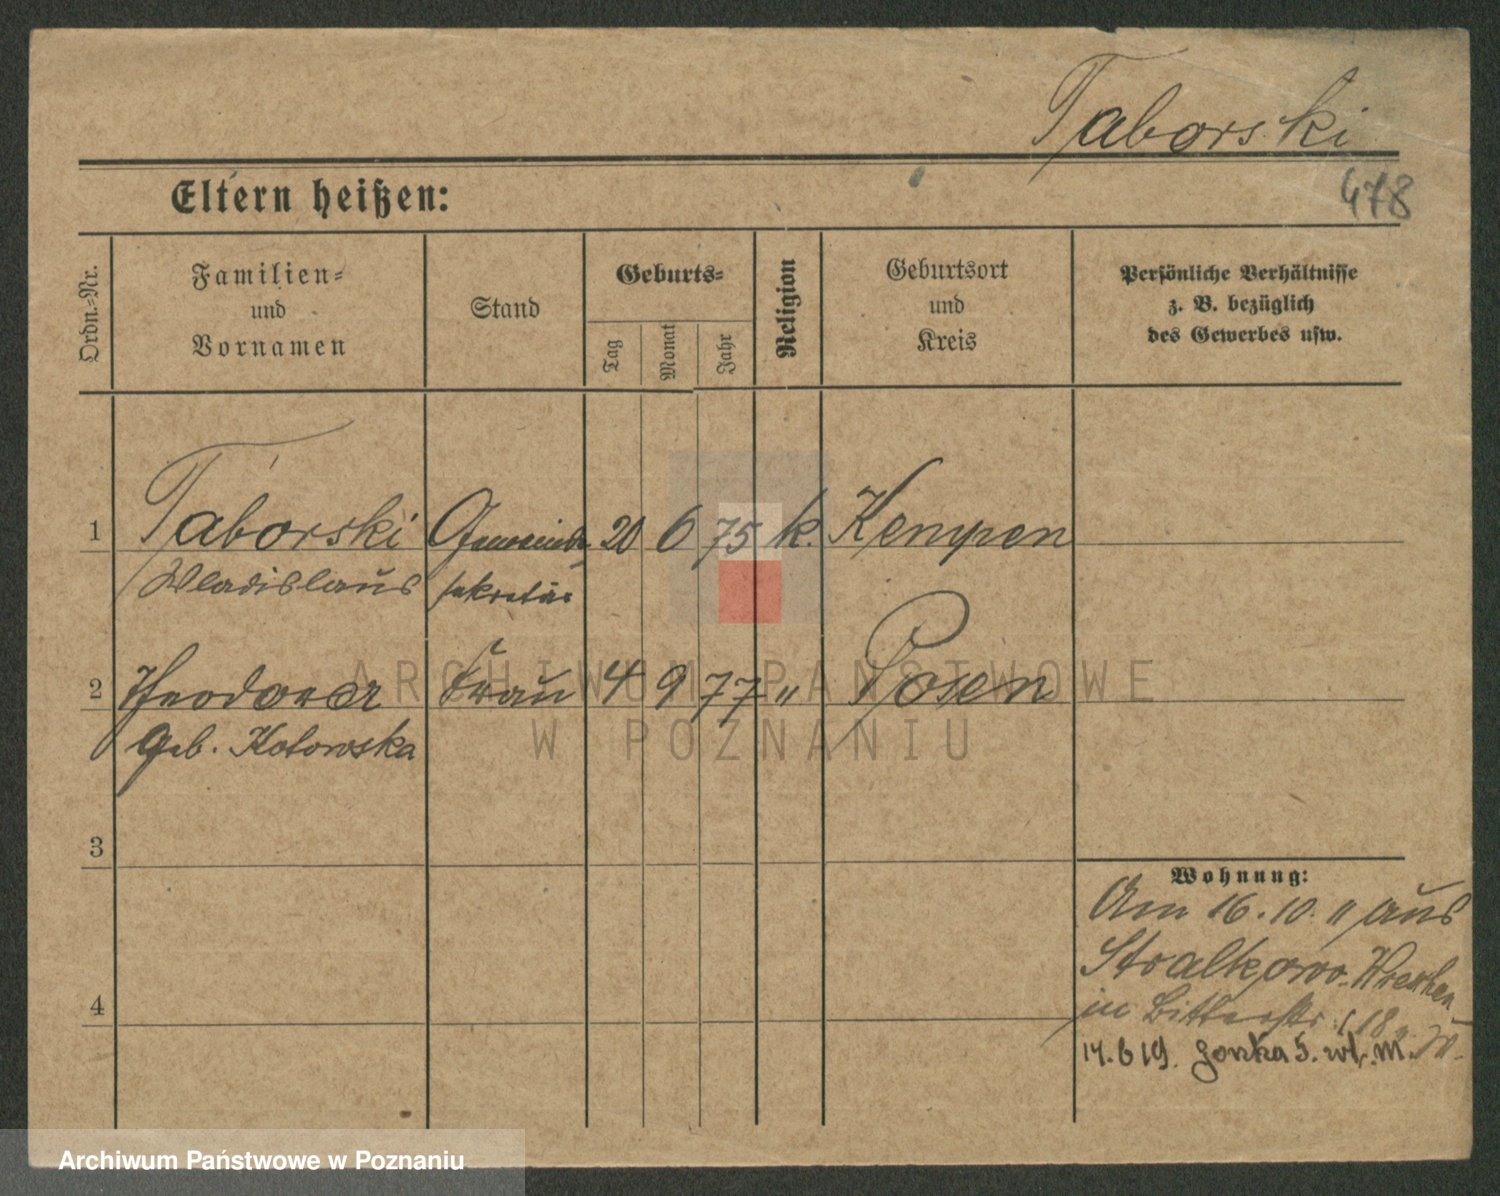 Taborski
478
Eltern heißen:
Ordn.-Nr.
Familien-
und
Vornamen
Stand
Geburts-
Tag
Monat
Jahr
Religion
Geburtsort
und
Kreis
Persönliche Verhältnisse
z. B. bezüglich
des Gewerbes usw.
1 Taborski Gemeinde 20 6 75 k. Kempen
Wladislaus sekretär
2 Theodora Frau 4 9 77 " Posen
geb. Kotowska
3
Wohnung:
Am 16.10. " aus
Stralkowo Wreschen
4
in Bitterstr. 18
14.6 19. 5. M.
ARCHIWUM PAŃSTWOWE
W POZNANIU
Archiwum Państwowe w Poznaniu